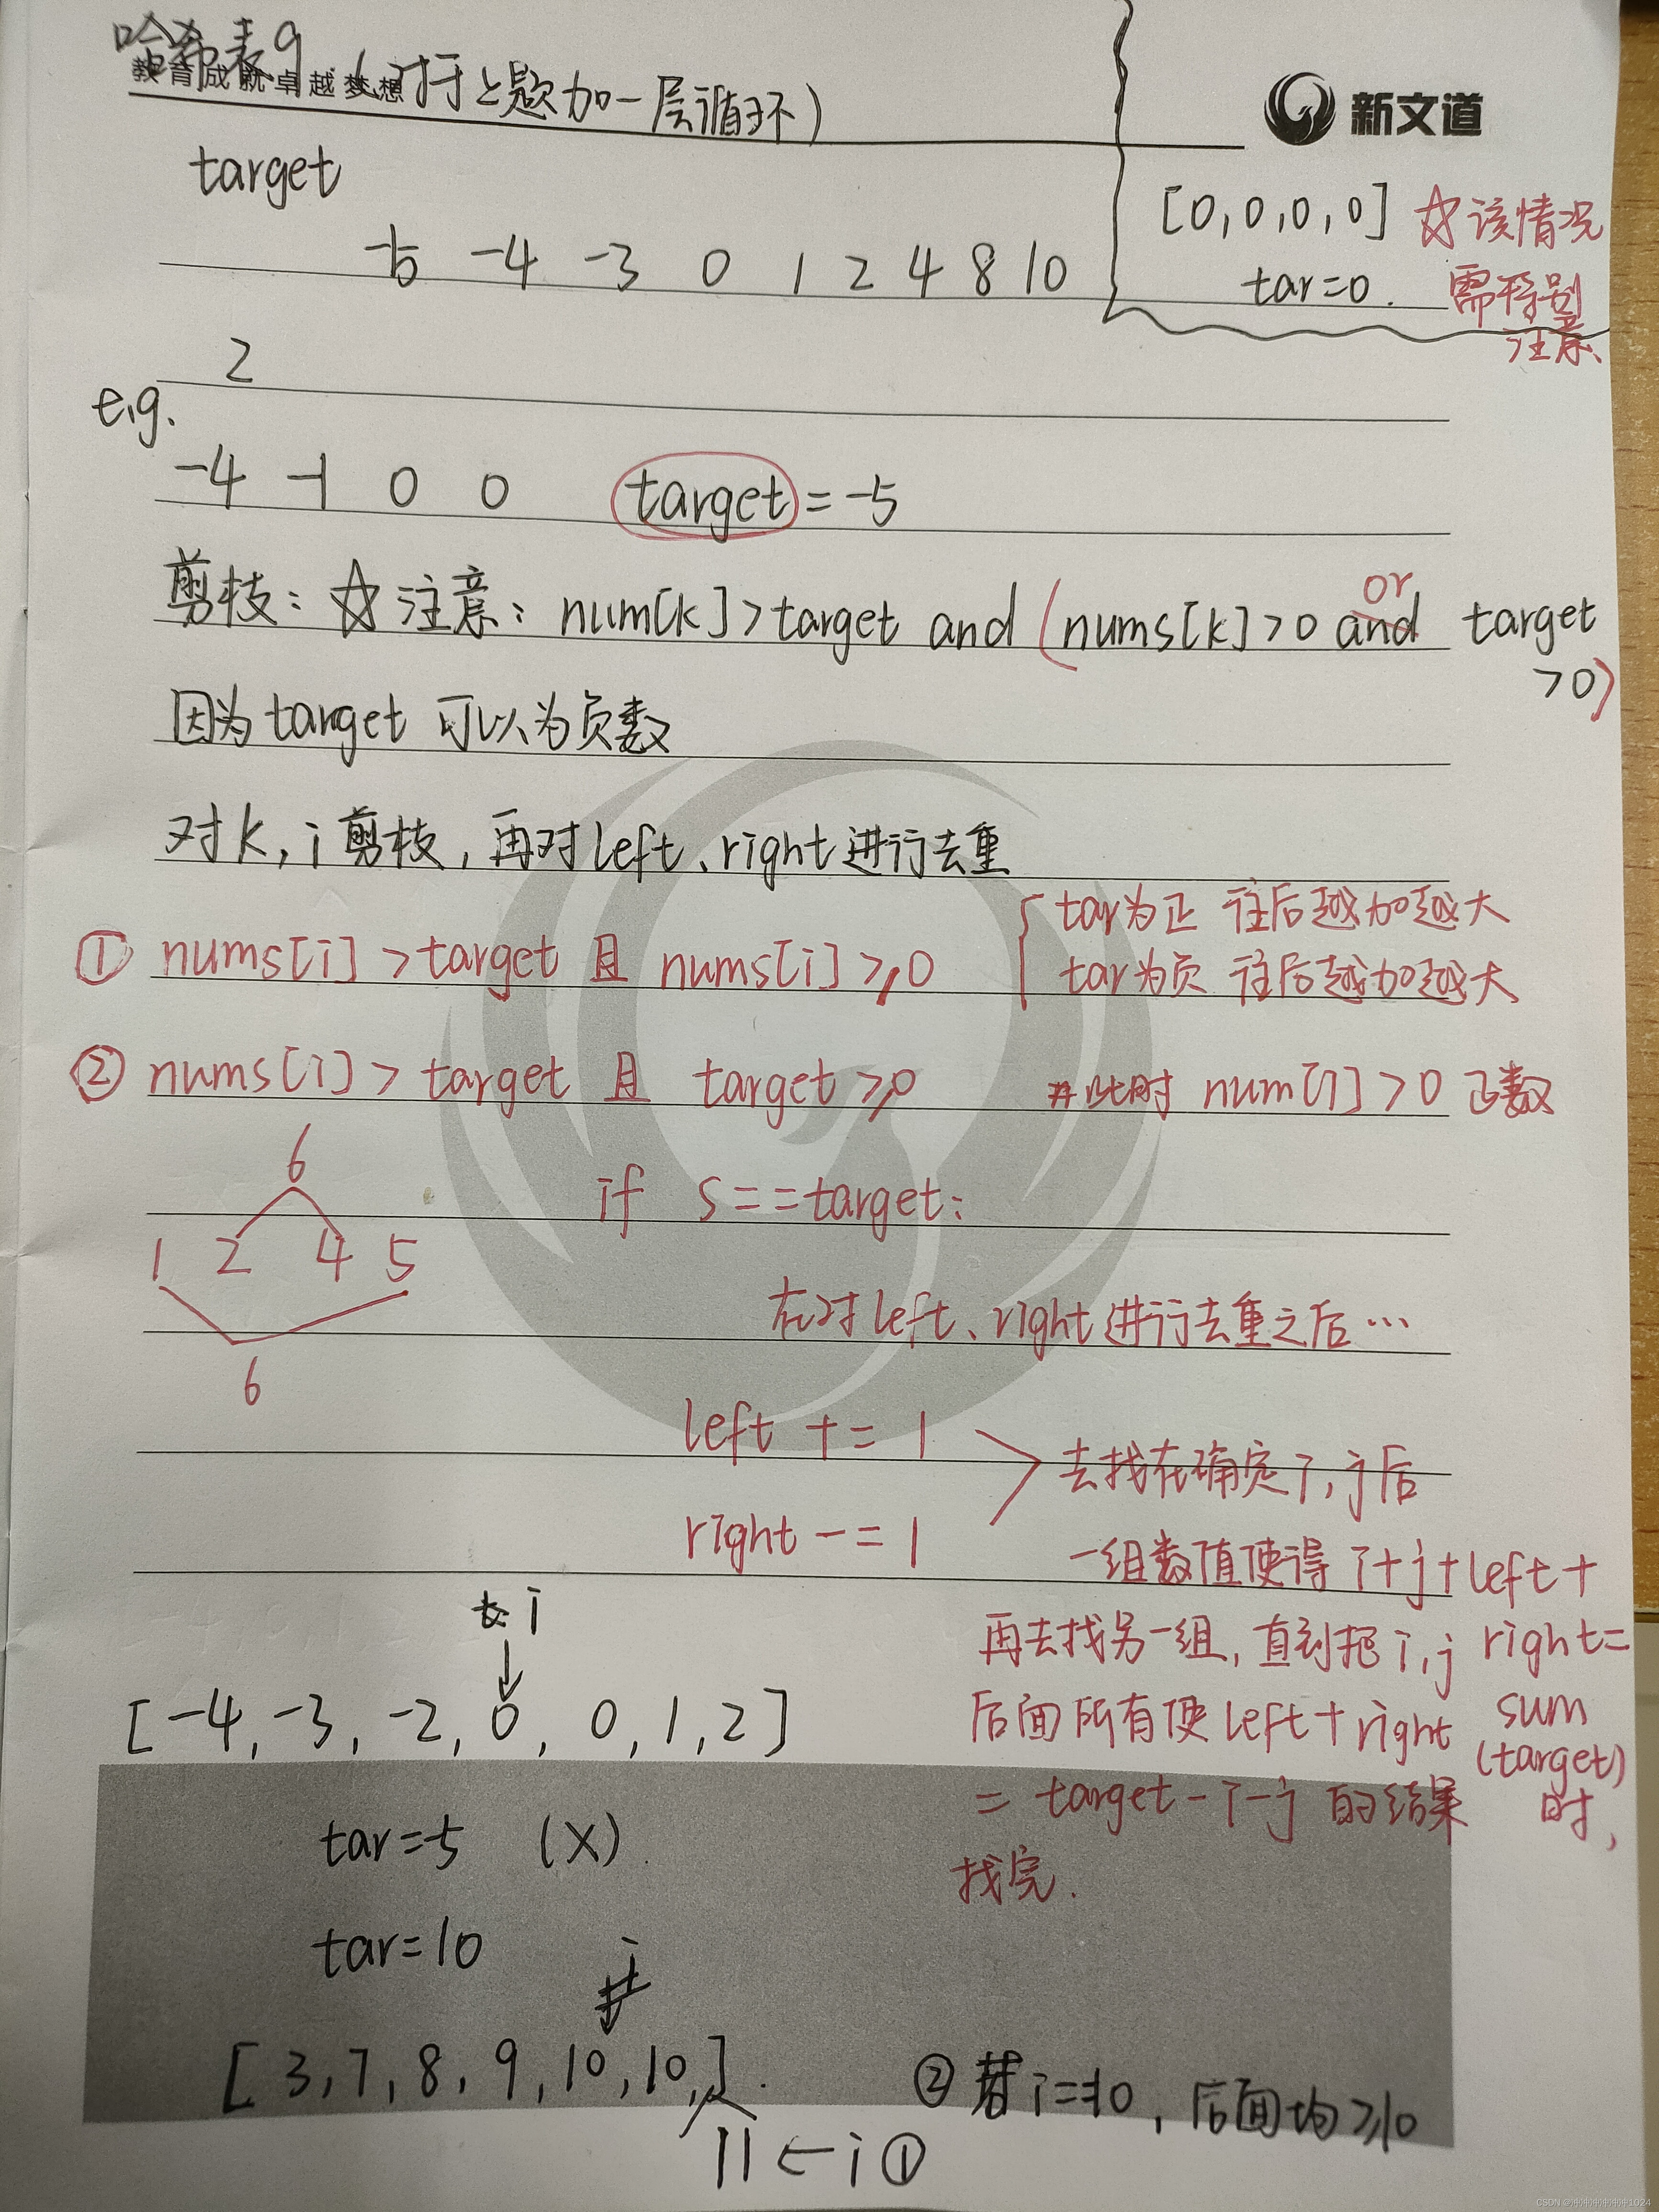 哈希表9 (对于上题加一层循环)
教育成就卓越梦想
新文道
target
[0,0,0,0] ☆该情况
tar=0. 需特别
注意
-5 -4 -3 0 1 2 4 8 10
2
e.g.
-4 -1 0 0 target=-5
剪枝：☆注意：num[k]>target and (nums[k]>0 and or target
>0)
因为target可以为负数
对k,i剪枝,再对left、right进行去重
① nums[i]>target 且 nums[i]≥0
{ tar为正 往后越加越大
tar为负 往后越加越大
② nums[i]> target 且 target≥0 #此时 num[i]>0 正数
6
1 2 4 5
6
if s==target:
在对left、right进行去重之后…
left += 1
right -= 1
去找在确定i,j后
一组数值使得 i+j+left+
right=
sum
(target)
时,
再去找另一组,直到把i,j
后面所有使left+right
= target-i-j 的结果
找完.
i
↓
[-4,-3,-2,0,0,1,2]
tar=-5 (X)
tar=10
[3,7,8,9,10,10,].
11 ←i ①
② 若i==10,后面均≥10